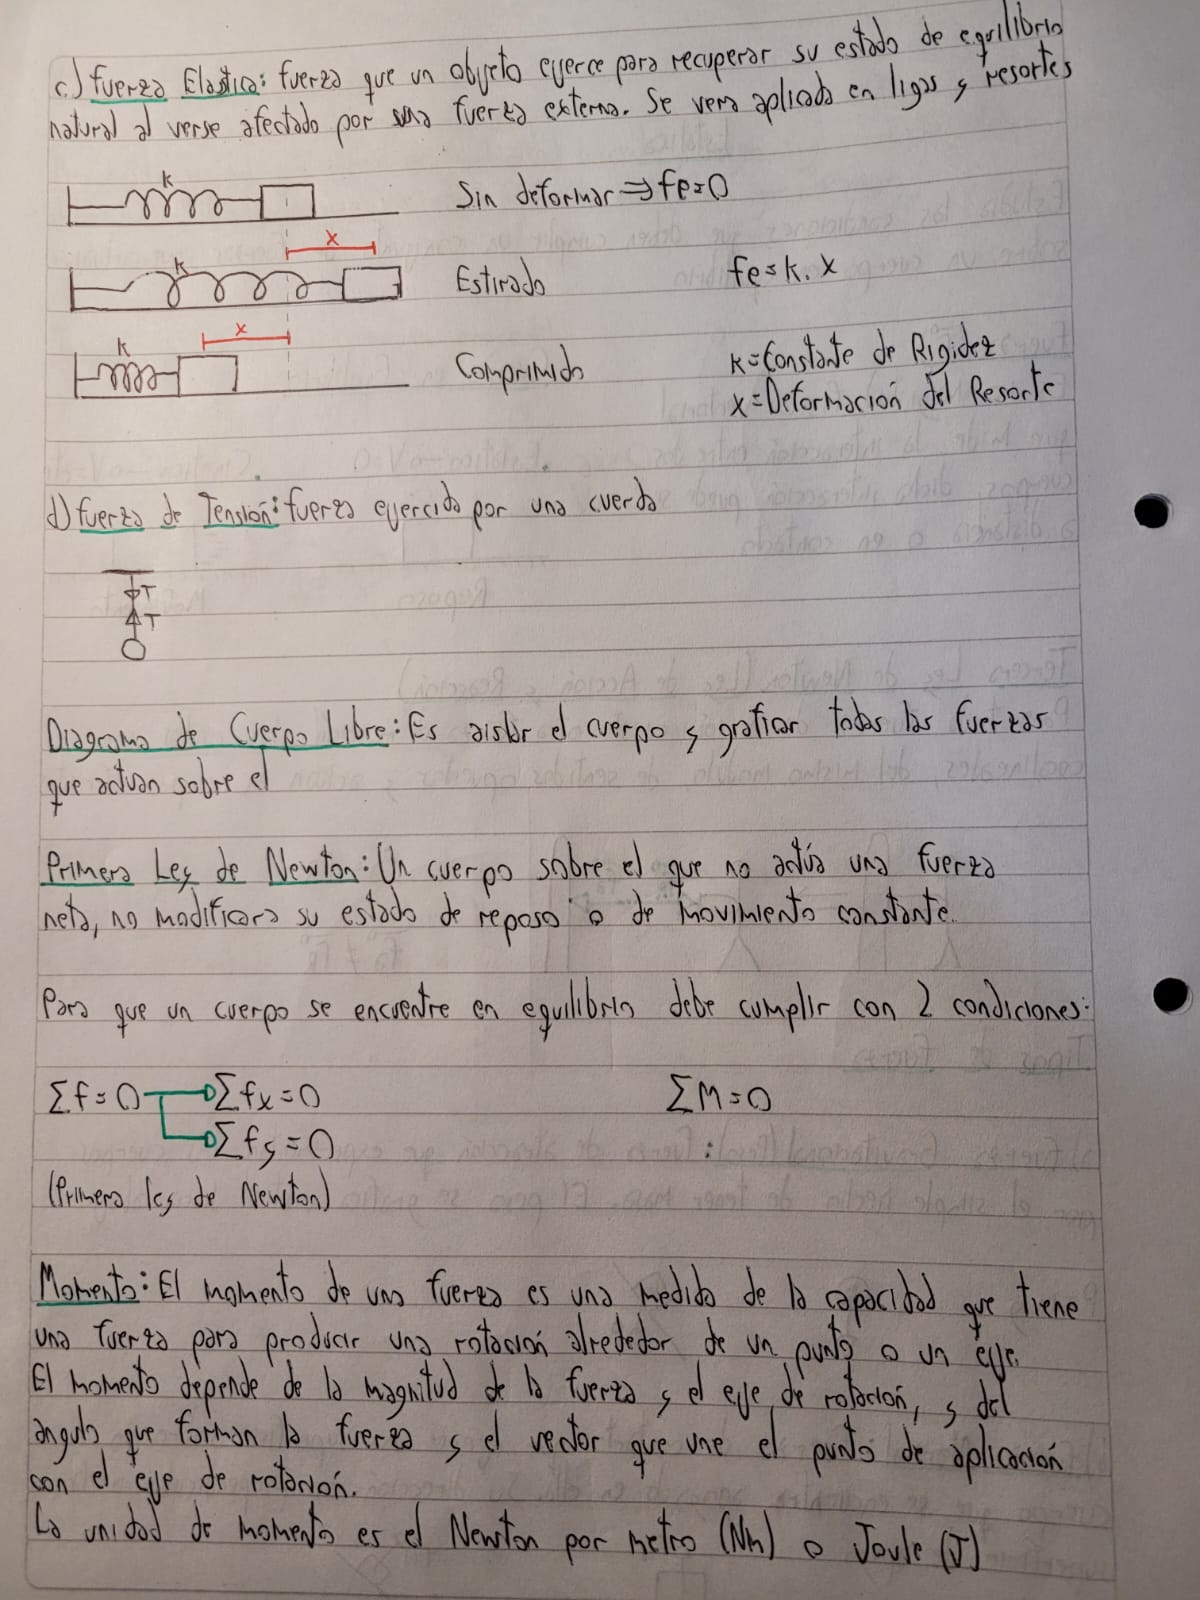 c) Fuerza Elastica: fuerza que un objeto ejerce para recuperar su estado de equilibrio
natural al verse afectado por una fuerza externa. Se vera aplicada en ligas y resortes
k
Sin deformar ⇒ fe=0
x
k
Estirado
fe=k.x
x
k
Comprimido
K=Constante de Rigidez
x=Deformación del Resorte
d) Fuerza de Tensión: fuerza ejercida por una cuerda
T
T
Diagrama de Cuerpo Libre: Es aislar el cuerpo y graficar todas las fuerzas
que actuan sobre el
Primera Ley de Newton: Un cuerpo sobre el que no actúa una fuerza
neta, no modificara su estado de reposo o de movimiento constante.
Para que un cuerpo se encuentre en equilibrio debe cumplir con 2 condiciones:
Σf=0 → Σfx=0
ΣM=0
Σfy=0
(Primera ley de Newton)
Momento: El momento de una fuerza es una medida de la capacidad que tiene
una fuerza para producir una rotación alrededor de un punto o un eje.
El momento depende de la magnitud de la fuerza y el eje de rotación, y del
angulo que forman la fuerza y el vector que une el punto de aplicación
con el eje de rotación.
La unidad de momento es el Newton por metro (Nm) o Joule (J)